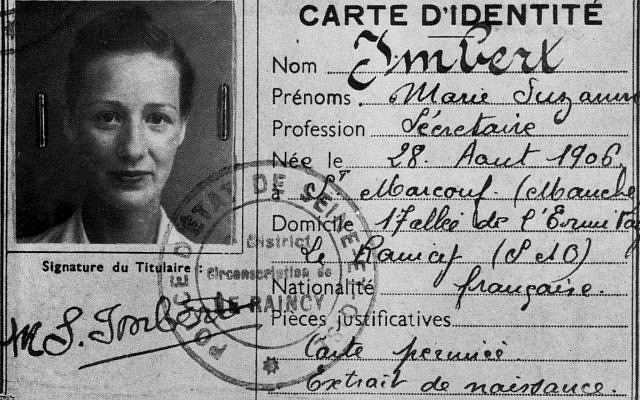 CARTE D'IDENTITÉ
Nom Imbert
Prénoms Marie Suzanne
Profession Sécretaire
Née le 28. Aout 1906
à St Marcouf. (Manche
Domicile 17 allée de l'Ermitag
Le Raincy (S & O)
Nationalité française.
Pièces justificatives
Carte permise.
Extrait de naissance.
Signature du Titulaire :
M S. Imbert
POLICE D'ÉTAT DE SEINE ET OISE
District
Circonscription de
LE RAINCY